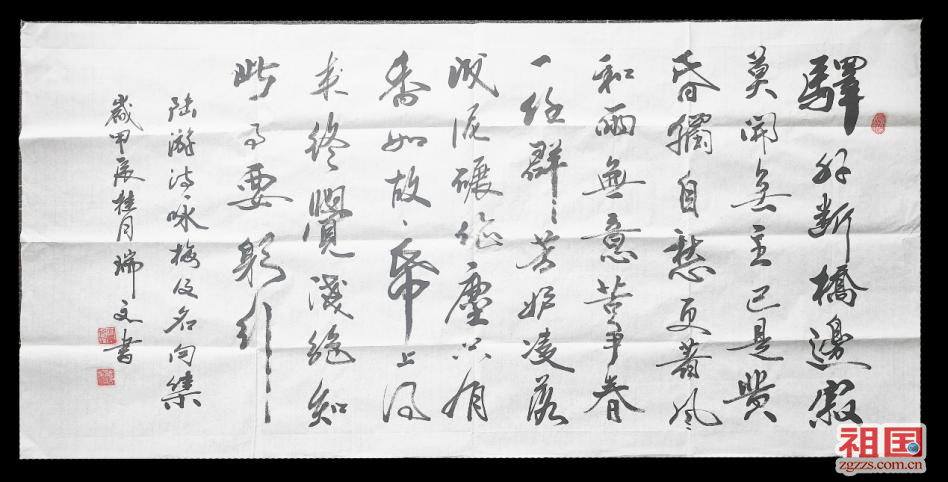 驛外斷橋邊寂
莫開無主已是黃
昏獨自愁更著風
和雨無意苦争春
一任群芳妒凌落
成泥碾作塵只有
香如故帋上得
来終覺淺絶知
此事要躬行
陆游诗咏梅及名句集
歲甲辰桂月瑞文書
祖国
zgzzs.com.cn